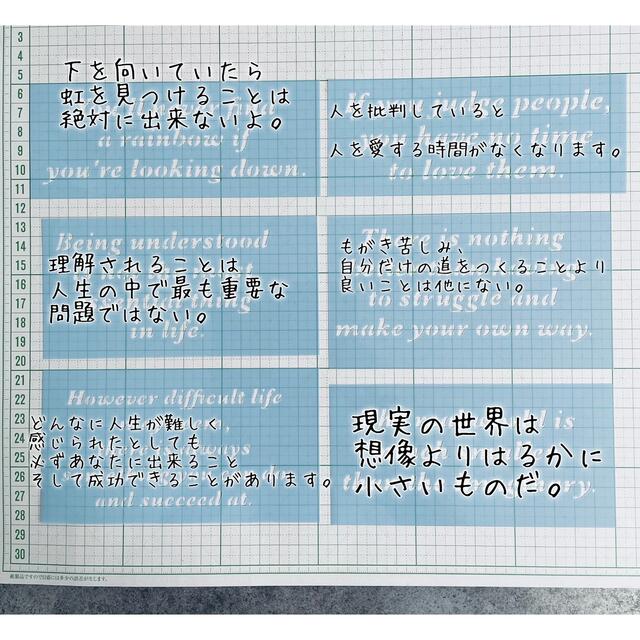 3
4
5
6
7
8
9
10
11
12
13
14
15
16
17
18
19
20
21
22
23
24
25
26
27
28
29
30
下を向いていたら
虹を見つけることは
絶対に出来ないよ。
a rainbow if
you're looking down.
人を批判していると
人を愛する時間がなくなります。
If you judge people,
you have no time
to love them.
Being understood
理解されることは
人生の中で最も重要な
問題ではない。
in life.
There is nothing
もがき苦しみ、
自分だけの道をつくることより
良いことは他にない。
to struggle and
make your own way.
However difficult life
どんなに人生が難しく
感じられたとしても
必ずあなたに出来ること
そして成功できることがあります。
and succeed at.
現実の世界は
想像よりはるかに
小さいものだ。